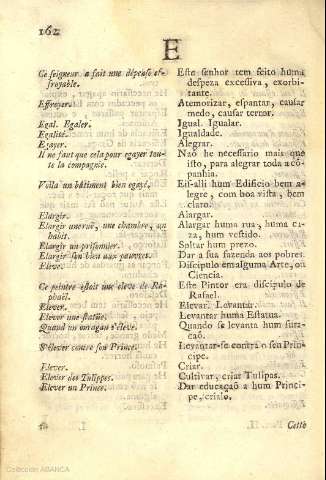 162
E
Ce seigneur a fait une dépense ef-
froyable.
Este senhor tem feito huma
despeza excessiva, exorbi-
tante.
Effroyer.
Atemorizar, espantar, causar
medo, causar terror.
Egal. Egaler.
Igual. Igualar.
Egalité.
Igualdade.
Egayer.
Alegrar.
Il ne faut que cela pour egayer tou-
te la compagnie.
Naõ he necessario mais que
isto, para alegrar toda a cō-
panhia.
Voila un bâtiment bien egayé.
Eis-alli hum Edificio bem a-
legre, com boa vista, bem
claro.
Elargir.
Alargar.
Elargir une ruë, une chambre, un
habit.
Alargar huma rua, huma ca-
za, hum vestido.
Elargir un prisonnier.
Soltar hum prezo.
Elargir son bien aux pauvres.
Dar a sua fazenda aos pobres.
Eleve.
Discipulo em alguma Arte, ou
Ciencia.
Ce peintre estoit une eleve de Ra-
phaël.
Este Pintor era discipulo de
Rafael.
Elever.
Elevar. Levantar.
Elever une statüe.
Levantar huma Estatua.
Quand un ouragan s'éleve.
Quando se levanta hum fura-
caõ.
S'élever contre son Prince.
Levantar-se contra o seu Prin-
cipe.
Elever.
Criar.
Elever des Tulippes.
Cultivar, criar Tulipas.
Elever un Prince.
Dar educaçaõ a hum Princi-
pe, crialo.
Cette
Colección ABANCA